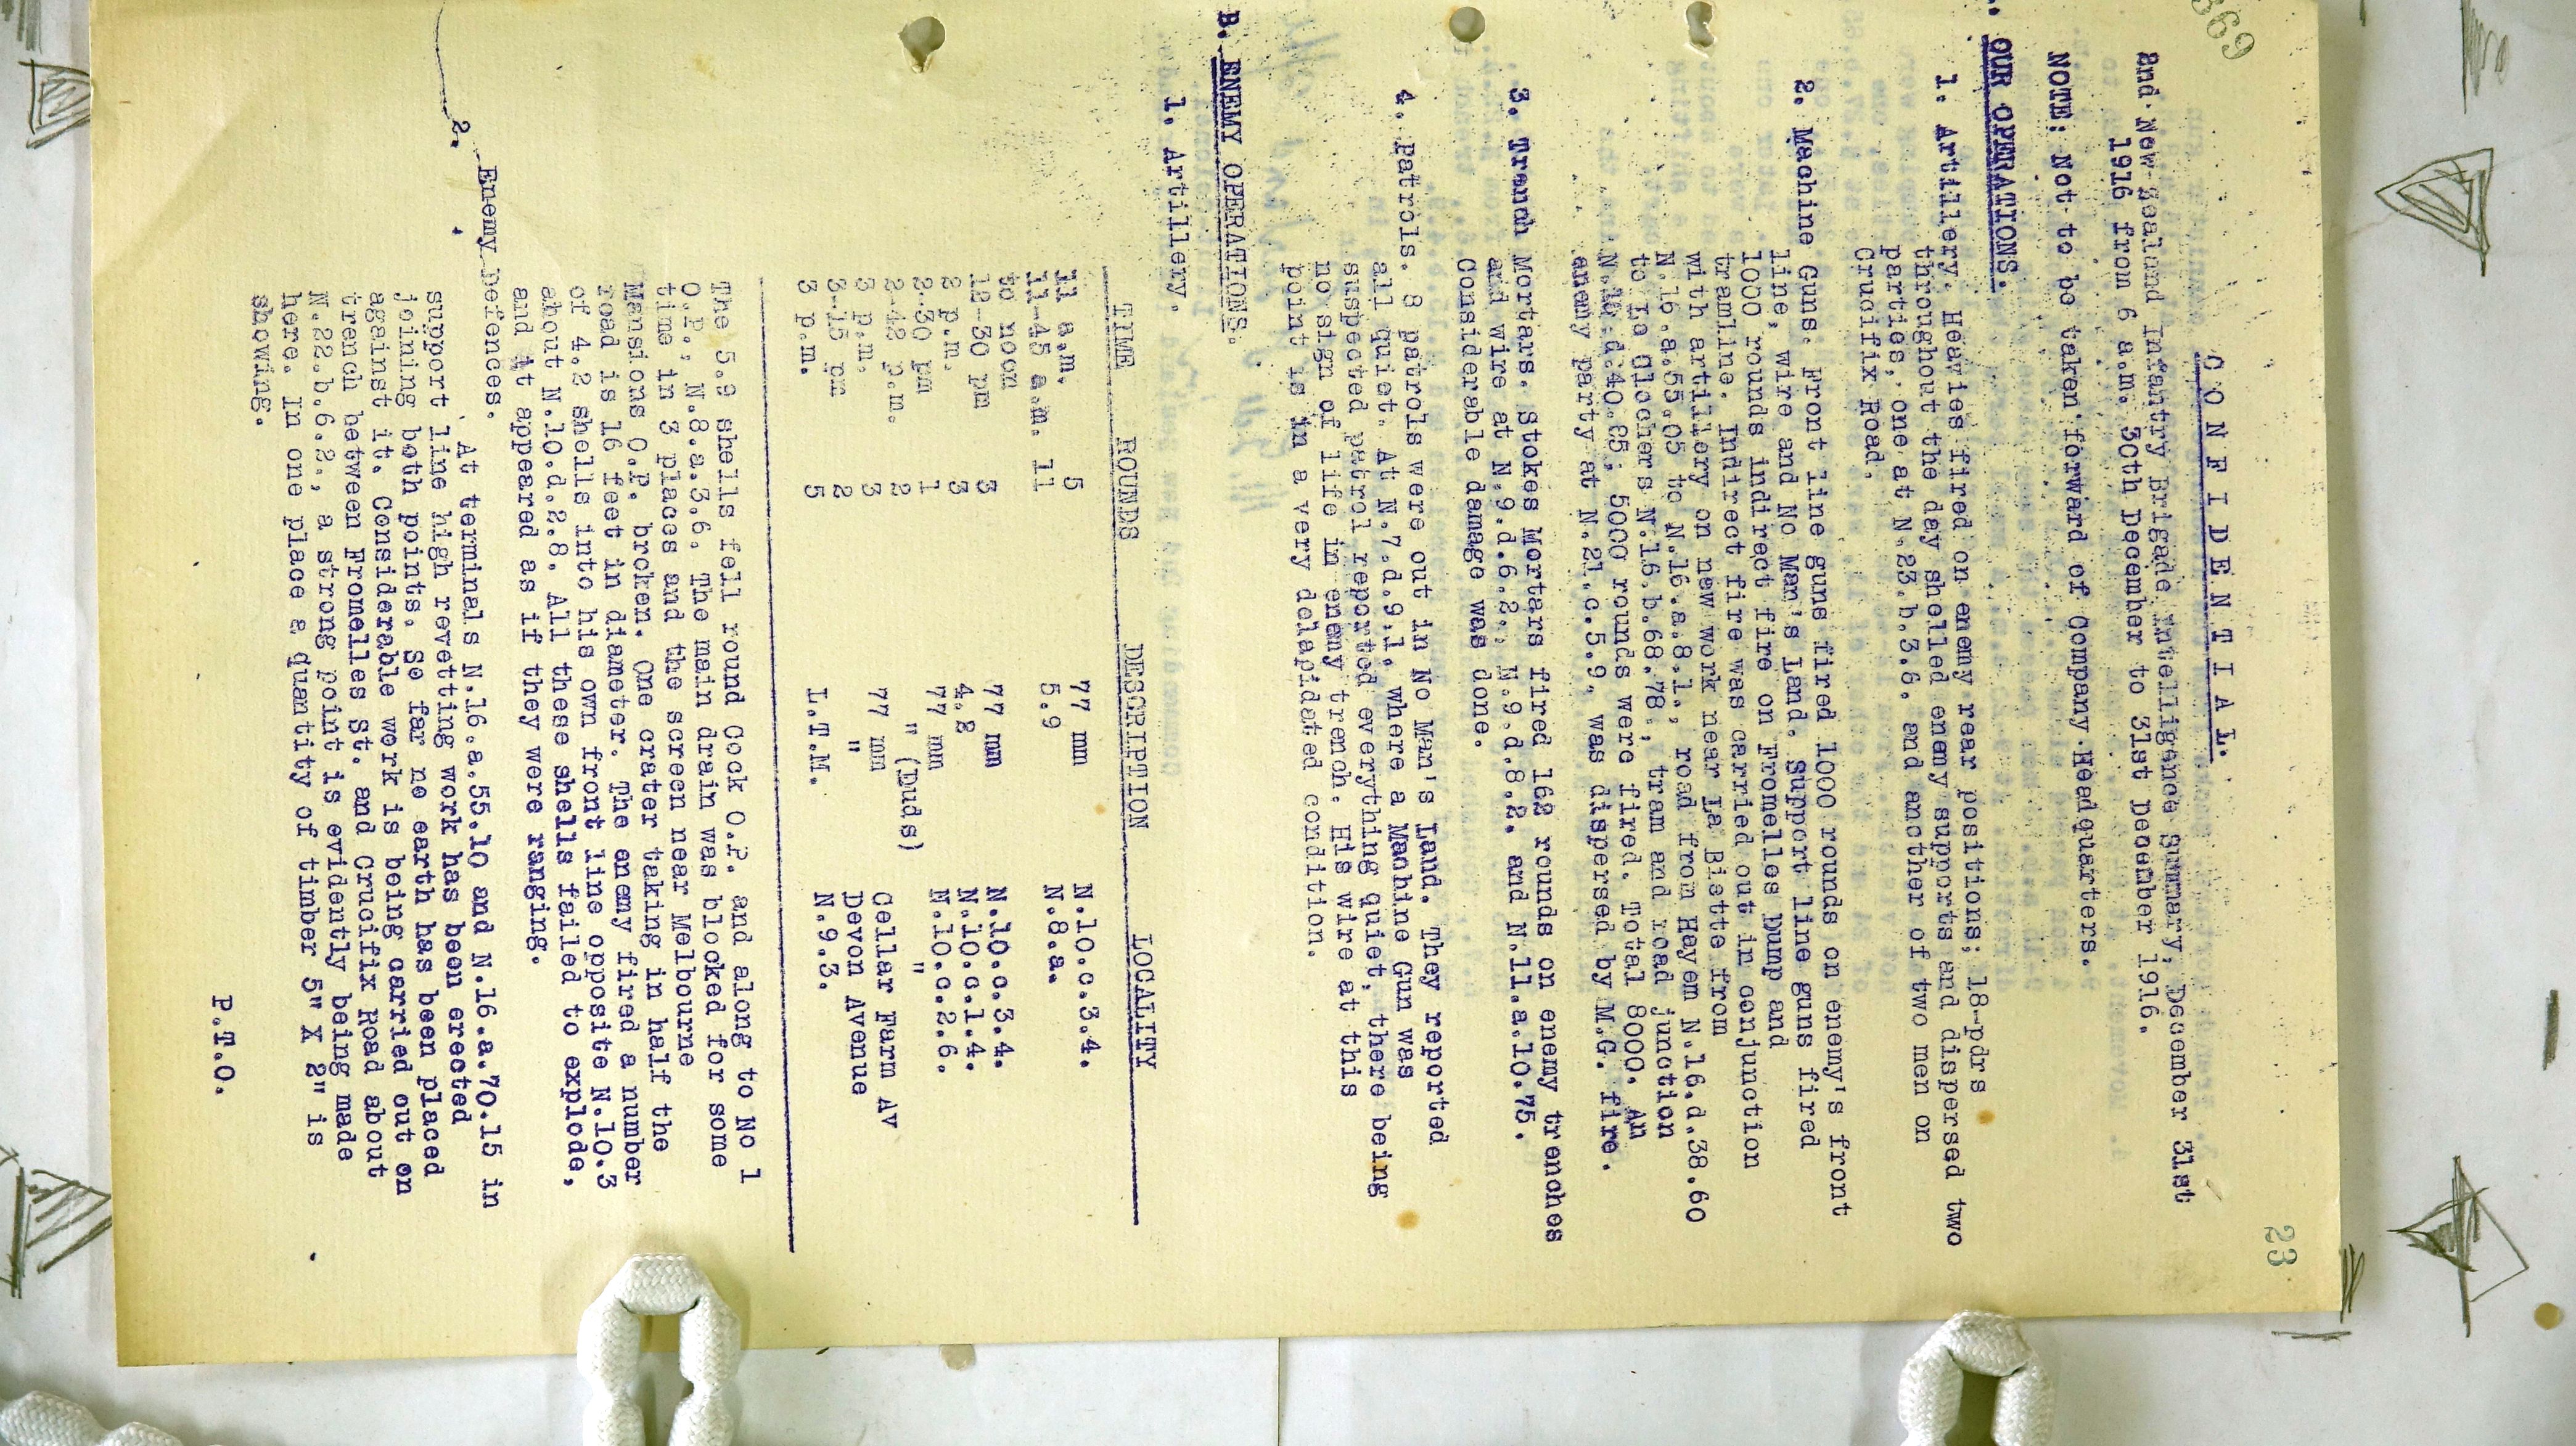 369
23
C O N F I D E N T I A L.
2nd New Zealand Infantry Brigade Intelligence Summary, December 31st
1916 from 6 a.m. 30th December to 31st December 1916.
NOTE: Not to be taken forward of Company Headquarters.
OUR OPERATIONS.
1. Artillery. Heavies fired on enemy rear positions; 18-pdrs
throughout the day shelled enemy supports and dispersed two
parties, one at N.23.b.3.6. and another of two men on
Crucifix Road.
2. Machine Guns. Front line guns fired 1000 rounds on enemy's front
line, wire and No Man's Land. Support line guns fired
1000 rounds indirect fire on Fromelles Dump and
tramline. Indirect fire was carried out in conjunction
with artillery on new work near La Biette from
N.16.a.55.05 to N.16.a.8.1., road from Hayem N.16.d.38.60
to La Glocher's N.16.b.68.78., tram and road junction
N.16.d.40.85; 5000 rounds were fired. Total 8000. An
enemy party at N.21.c.5.9. was dispersed by M.G. fire.
3. Trench Mortars. Stokes Mortars fired 162 rounds on enemy trenches
and wire at N.9.d.6.2., N.9.d.8.2. and N.11.a.10.75.
Considerable damage was done.
4. Patrols. 8 patrols were out in No Man's Land. They reported
all quiet. At N.7.d.9.1. where a Machine Gun was
suspected patrol reported everything quiet, there being
no sign of life in enemy trench. His wire at this
point is in a very delapidated condition.
B. ENEMY OPERATIONS.
1. Artillery.
TIME ROUNDS DESCRIPTION LOCALITY
11 a.m. 5 77 mm N.10.c.3.4.
11-45 a.m. 11 5.9 N.8.a.
to noon
12-30 pm 3 77 mm N.10.c.3.4.
2 p.m. 3 4.2 N.10.c.1.4.
2-30 pm 1 77 mm N.10.c.2.6.
2-42 p.m. 2 " (Duds) "
3 p.m. 3 77 mm Cellar Farm Av
3-15 pm 2 " Devon Avenue
3 p.m. 5 L.T.M. N.9.3.
The 5.9 shells fell round Cock O.P. and along to No 1
O.P., N.8.a.3.6. The main drain was blocked for some
time in 3 places and the screen near Melbourne
Mansions O.P. broken. One crater taking in half the
road is 16 feet in diameter. The enemy fired a number
of 4.2 shells into his own front line opposite N.10.3
about N.10.d.2.8. All these shells failed to explode,
and it appeared as if they were ranging.
2. Enemy Defences.
At terminals N.16.a.55.10 and N.16.a.70.15 in
support line high revetting work has been erected
joining both points. So far no earth has been placed
against it. Considerable work is being carried out on
trench between Fromelles St. and Crucifix Road about
N.22.b.6.2., a strong point is evidently being made
here. In one place a quantity of timber 5" X 2" is
showing.
P.T.O.